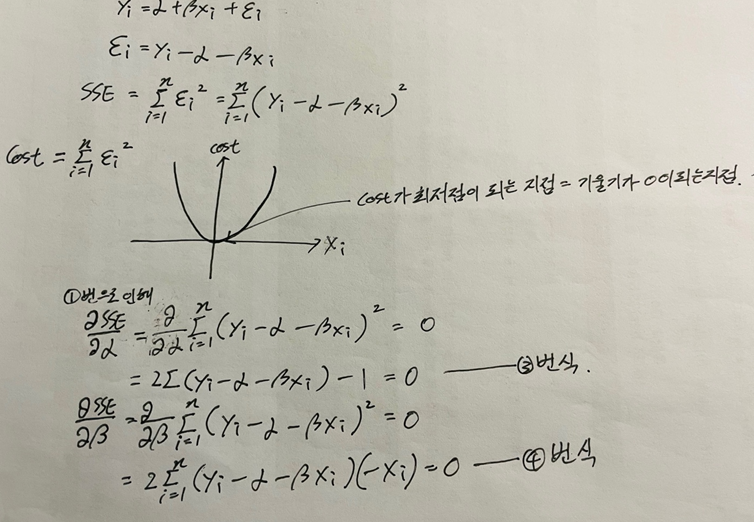 Yi = α + βxi + εi
εi = Yi - α - βxi
SSE = Σ_{i=1}^{n} εi² = Σ_{i=1}^{n} (Yi - α - βxi)²
Cost = Σ_{i=1}^{n} εi²
cost
cost가 최저점이 되는 지점 = 기울기가 0이 되는지점.
xi
①번으로 인해
∂SSE/∂α = ∂/∂α Σ_{i=1}^{n} (Yi - α - βxi)² = 0
= 2Σ(Yi - α - βxi) - 1 = 0 —— ③번식.
∂SSE/∂β = ∂/∂β Σ_{i=1}^{n} (Yi - α - βxi)² = 0
= 2Σ_{i=1}^{n} (Yi - α - βxi)(-xi) = 0 —— ④번식